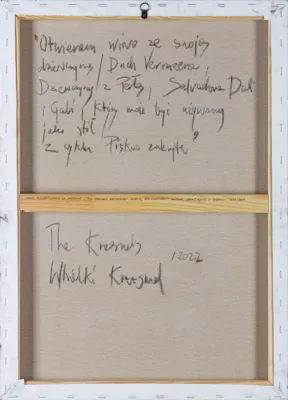 "Otwieram wino ze swoją
dziewczyną / Duch Vermeera,
Dziewczyny z Perłą, Salvadora Dali
i Gali, który może być używany
jako stół /
Z cyklu Piękno zaklęte"
The Krasnals
Whielki Krasnal
/2022